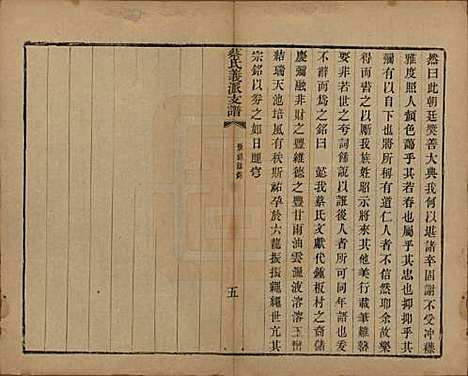 然曰此朝廷獎善大典我何以堪諸卒固謝不受冲穆
雅度照人顏色藹乎其若春也屬乎其言也抑抑乎其
彌有以自下也卽所稱有道仁人者不信然耶余故樂
述其事之以貽我族姓昭示將來其他美行載筆維夥
要非若世之夸詞餘說以諛後人者所可同年語也
辭而爲之銘曰 懿我蔡氏文獻代鍾板村之裔儲
慶彌融非財之豐維德之豐甘雨油雲瀜液溶溶玉
結瑞天池培風有秩斯祐孕於六龍振振繩繩世亢其
宗銘以劵之如日麗穹
蔡氏義派支譜
五